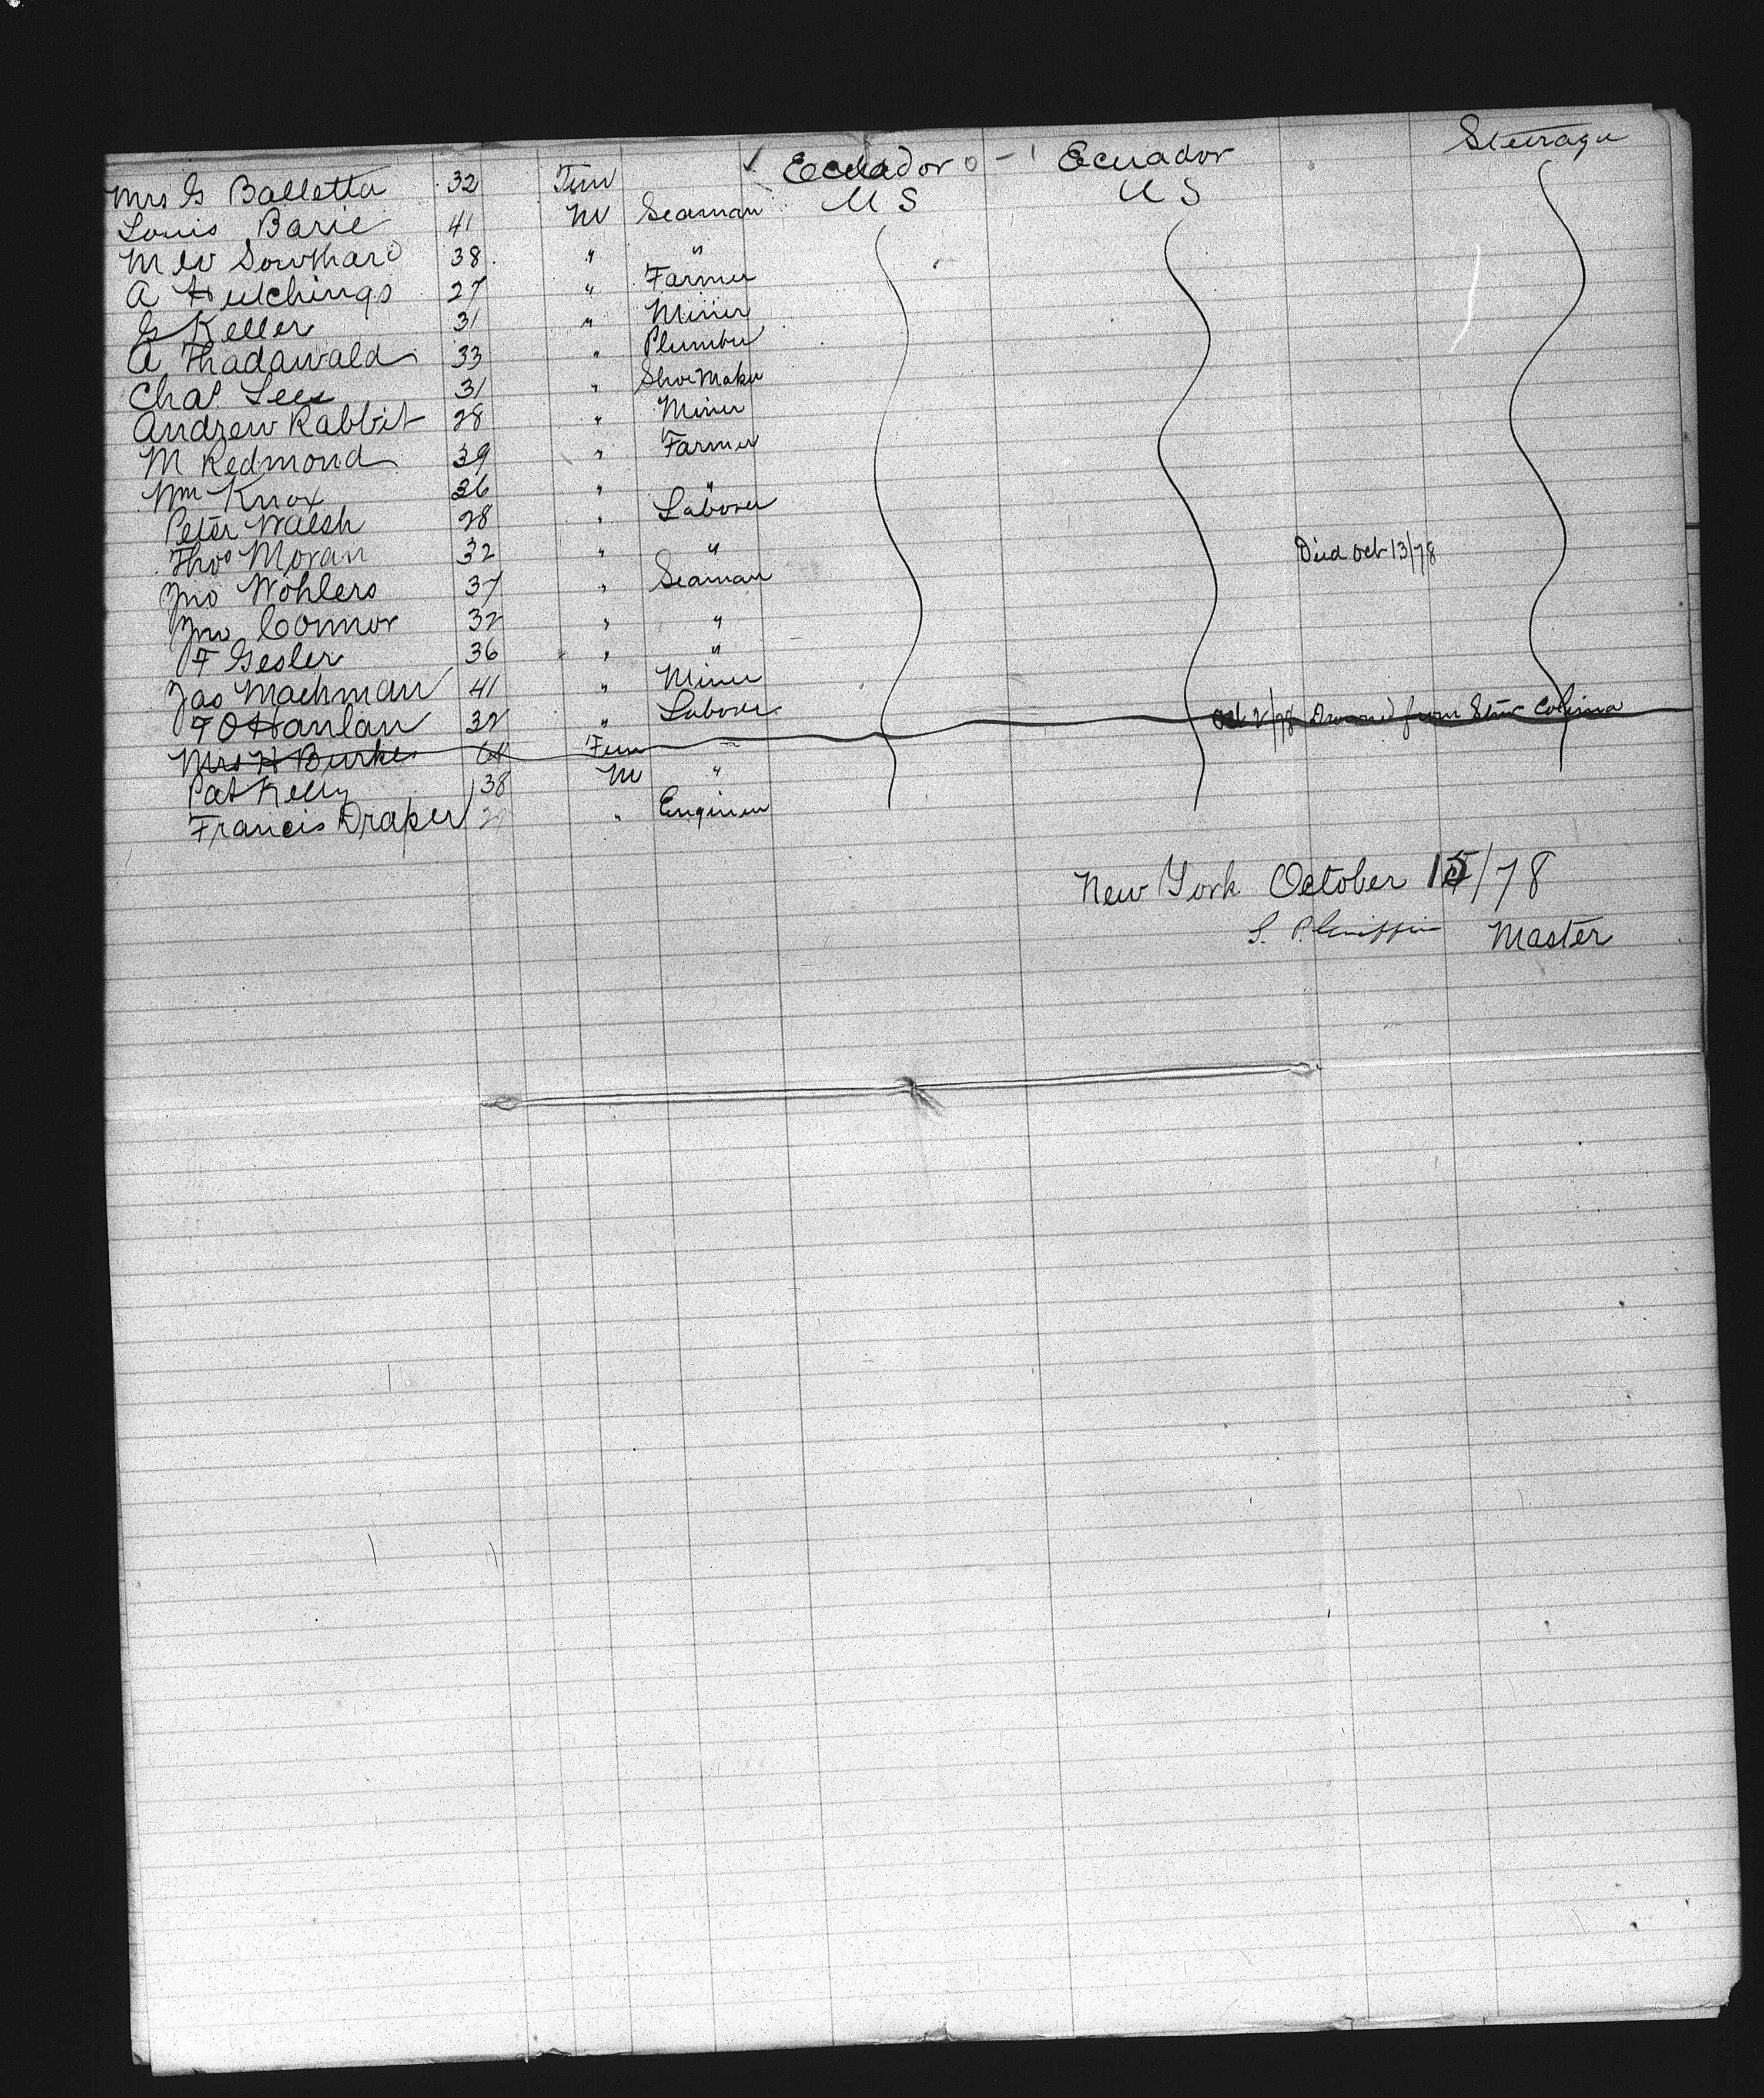 Mrs G Balletta 32 Fem Ecuador 0 - 1 Ecuador Steerage
Louis Barie 41 M Seaman U S U S
M W Southard 38 " "
A Hutchings 27 " Farmer
G Keller 31 " Miner
A Thadawald 33 " Plumber
Chas Lees 31 " Shoe Maker
Andrew Rabbit 28 " Miner
M Redmond 39 " Farmer
Wm Knox 36 " "
Peter Walsh 28 " Laborer
Thos Moran 32 " " Died Oct 13/78
Jno Wohlers 37 " Seaman
Jno Connor 32 " "
F Gesler 36 " "
Jas Machman 41 " Miner
F O Hanlan 32 " Laborer
Mrs H Burke 64 Fem Oct 2/78 Drowned from Stmr Colima
Pat Kelly 38 M "
Francis Draper " Engineer
New York October 15/78
S. P. Griffin Master